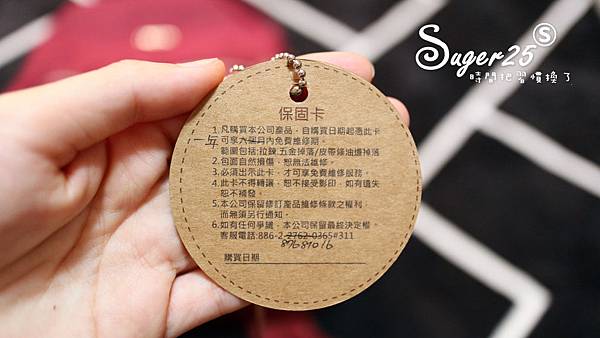 Suger25 S
時間把習慣換了
保固卡
1. 凡購買本公司產品,自購買日期起憑此卡
一年
可享六個月內免費維修期。
範圍包括:拉鍊.五金掉落/皮帶條油邊掉落
2. 包面自然損傷,恕無法維修。
3. 必須出示此卡,才可享免費維修服務。
4. 此卡不得轉讓,恕不接受影印,如有遺失
恕不補發。
5. 本公司保留修訂產品維修條款之權利,
而無須另行通知。
6. 如有任何爭議,本公司保留最終決定權。
客服電話:886-2-2762-0365#311
87681016
購買日期